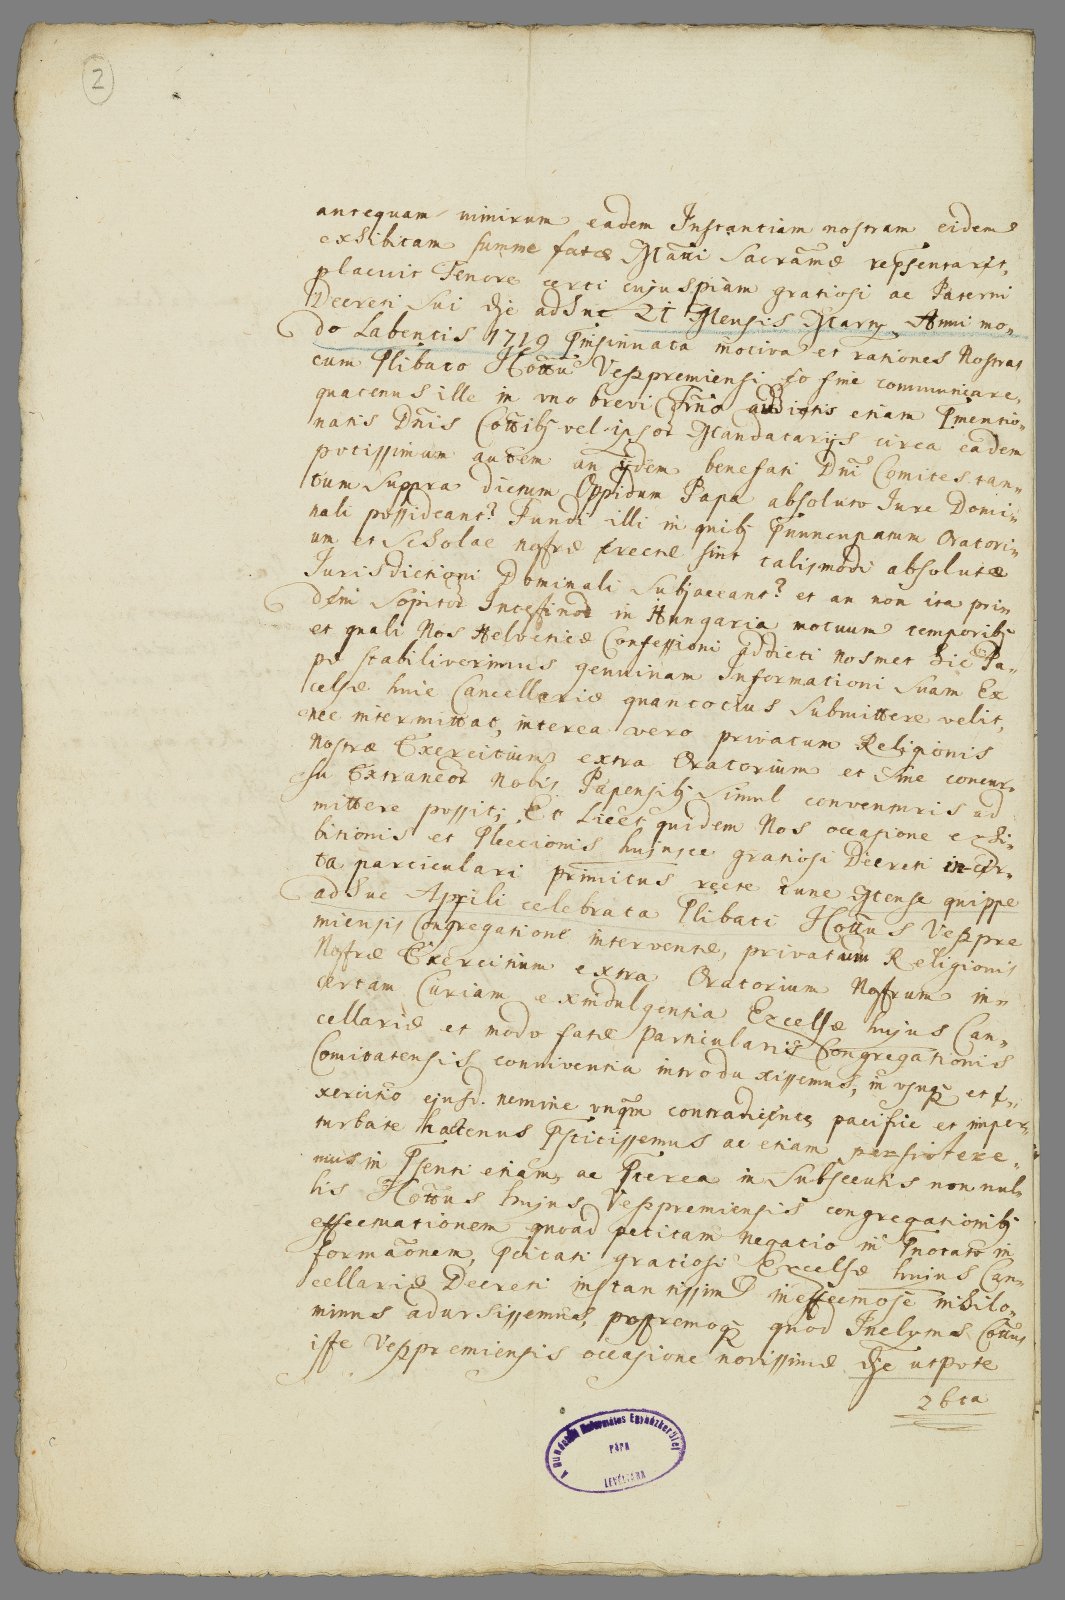 2
antequam nimirum eadem Instantiam nostram eidem
exhibitam summe fatæ Matti Sacramæ repsentarit,
placuit Tenore certi cujuspiam gratiosi ac Paterni
Decreti sui die adhuc 21 Mensis Marty Anni mo„
do Labentis 1719 Pmsinnata motiva et rationes Nostras
cum Plibato Hottu Veszpremiensi eo fine communicare,
quatenus ille in uno brevi Trno auditis etiam Pmentio„
natis Dnis Cottibq vel ipsor Mandatarijs circa eadem
potissimum autem an ijdem benefati Dni Comites tan„
tum supra dictum Oppidum Papa absoluto Jure Domi„
nali possideant? Fundi illi in quibq Pnuncupatum Oratori„
um et Scholae nostræ erectæ sint talismodi absolutæ
Jurisdictioni Dominali subjaceant? et an non ita pri„
dem sopitor Intestinor in Hungaria motuum temporibq
et quali Nos Helveticæ Confessioni addicti nosmet hic Pa„
pæ stabiliverimus genuinam Informationi suam Ex
celsæ huic Cancellariæ quantocius submittere velit,
nec intermittat, interea vero privatum Religionis
Nostræ Exercitium extra Oratorium et sine concur„
su Extraneor Nobis Papensibq simul conventuris ad
mittere possit; Et Licet quidem Nos occasione exhi„
bitionis et Pleccionis hujusce gratiosi Decreti in cir„
ta particulari primitus recte tunc Mense quippe
adhuc Aprili celebrata Plibati Hottus Veszpre
miensis Congregatione interventæ, privatum Religionis
Nostræ Exercitium extra Oratorium Nostrum in„
certam Curiam ex indulgentia Excelsæ hujus Can„
cellariæ et modo fatæ particularis Congregationis
Comitatensis conniventia introduxissemus, in usuq et E„
xercitio ejusd. nemine unqm contradicente pacifice et imper„
turbate hactenus Pstitissemus ac etiam persistere„
mus in Psenti etiam, ac Pterea in subsecutis nonnul„
lis Hottus hujus Veszpremiensis congregationibq
effectuationem quoad petitam negatio in Pnotato in
formaonem, Pcitati gratiosi Excelsæ hujus Can„
cellariæ Decreti instantissime in effectuose nihilo„
minus adursissemus, postremoq quod Inclytus Cottus
iste Veszpremiensis occasione novissimæ die utpote
26ta
A Dunántúli Református Egyházkerület
PÁPA
LEVÉLTÁRA